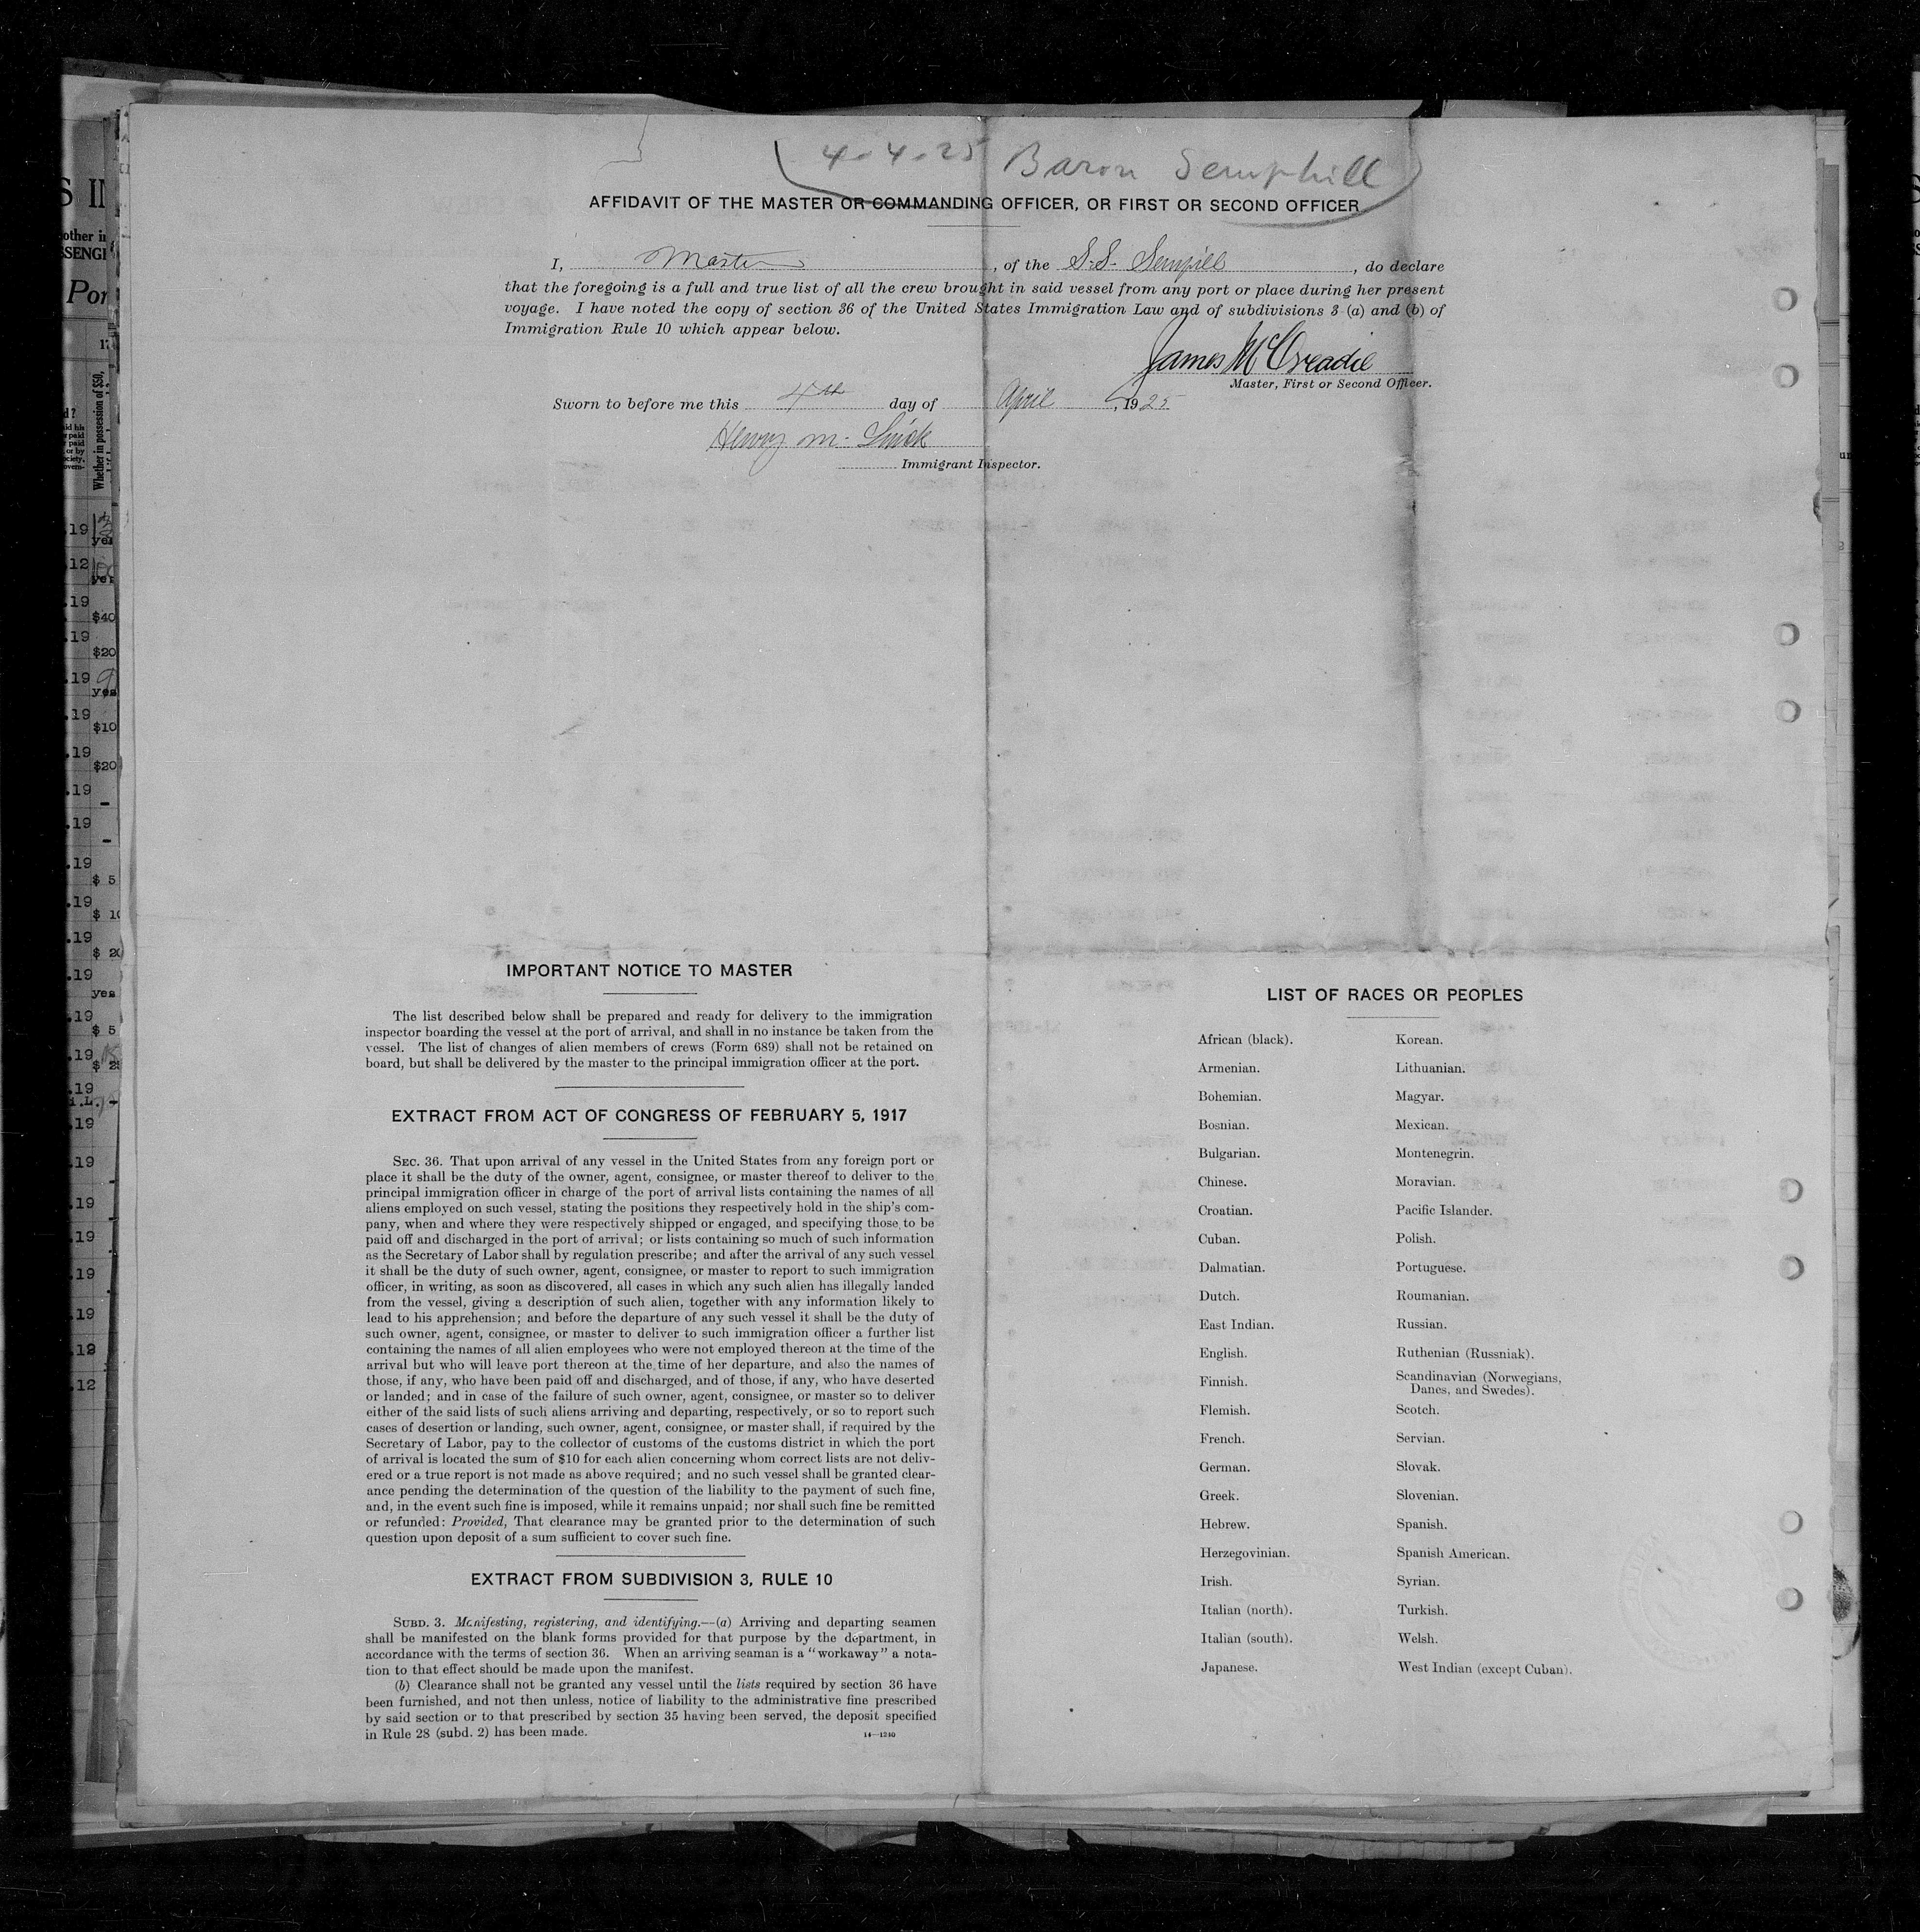 4-4-25 Baron Semphill
AFFIDAVIT OF THE MASTER OR COMMANDING OFFICER, OR FIRST OR SECOND OFFICER
I, Master, of the S.S. Sempill, do declare
that the foregoing is a full and true list of all the crew brought in said vessel from any port or place during her present
voyage. I have noted the copy of section 36 of the United States Immigration Law and of subdivisions 3 (a) and (b) of
Immigration Rule 10 which appear below.
James McCreadie
Master, First or Second Officer.
Sworn to before me this 4th day of April, 1925
Henry M.
Immigrant Inspector.
IMPORTANT NOTICE TO MASTER
The list described below shall be prepared and ready for delivery to the immigration
inspector boarding the vessel at the port of arrival, and shall in no instance be taken from the
vessel. The list of changes of alien members of crews (Form 689) shall not be retained on
board, but shall be delivered by the master to the principal immigration officer at the port.
EXTRACT FROM ACT OF CONGRESS OF FEBRUARY 5, 1917
SEC. 36. That upon arrival of any vessel in the United States from any foreign port or
place it shall be the duty of the owner, agent, consignee, or master thereof to deliver to the
principal immigration officer in charge of the port of arrival lists containing the names of all
aliens employed on such vessel, stating the positions they respectively hold in the ship's com-
pany, when and where they were respectively shipped or engaged, and specifying those to be
paid off and discharged in the port of arrival; or lists containing so much of such information
as the Secretary of Labor shall by regulation prescribe; and after the arrival of any such vessel
it shall be the duty of such owner, agent, consignee, or master to report to such immigration
officer, in writing, as soon as discovered, all cases in which any such alien has illegally landed
from the vessel, giving a description of such alien, together with any information likely to
lead to his apprehension; and before the departure of any such vessel it shall be the duty of
such owner, agent, consignee, or master to deliver to such immigration officer a further list
containing the names of all alien employees who were not employed thereon at the time of the
arrival but who will leave port thereon at the time of her departure, and also the names of
those, if any, who have been paid off and discharged, and of those, if any, who have deserted
or landed; and in case of the failure of such owner, agent, consignee, or master so to deliver
either of the said lists of such aliens arriving and departing, respectively, or so to report such
cases of desertion or landing, such owner, agent, consignee, or master shall, if required by the
Secretary of Labor, pay to the collector of customs of the customs district in which the port
of arrival is located the sum of $10 for each alien concerning whom correct lists are not deliv-
ered or a true report is not made as above required; and no such vessel shall be granted clear-
ance pending the determination of the question of the liability to the payment of such fine,
and, in the event such fine is imposed, while it remains unpaid; nor shall such fine be remitted
or refunded: Provided, That clearance may be granted prior to the determination of such
question upon deposit of a sum sufficient to cover such fine.
EXTRACT FROM SUBDIVISION 3, RULE 10
SUBD. 3. Manifesting, registering, and identifying.—(a) Arriving and departing seamen
shall be manifested on the blank forms provided for that purpose by the department, in
accordance with the terms of section 36. When an arriving seaman is a "workaway" a nota-
tion to that effect should be made upon the manifest.
(b) Clearance shall not be granted any vessel until the lists required by section 36 have
been furnished, and not then unless, notice of liability to the administrative fine prescribed
by said section or to that prescribed by section 35 having been served, the deposit specified
in Rule 28 (subd. 2) has been made.
14—1240
LIST OF RACES OR PEOPLES
African (black).
Armenian.
Bohemian.
Bosnian.
Bulgarian.
Chinese.
Croatian.
Cuban.
Dalmatian.
Dutch.
East Indian.
English.
Finnish.
Flemish.
French.
German.
Greek.
Hebrew.
Herzegovinian.
Irish.
Italian (north).
Italian (south).
Japanese.
Korean.
Lithuanian.
Magyar.
Mexican.
Montenegrin.
Moravian.
Pacific Islander.
Polish.
Portuguese.
Roumanian.
Russian.
Ruthenian (Russniak).
Scandinavian (Norwegians,
Danes, and Swedes).
Scotch.
Servian.
Slovak.
Slovenian.
Spanish.
Spanish American.
Syrian.
Turkish.
Welsh.
West Indian (except Cuban).